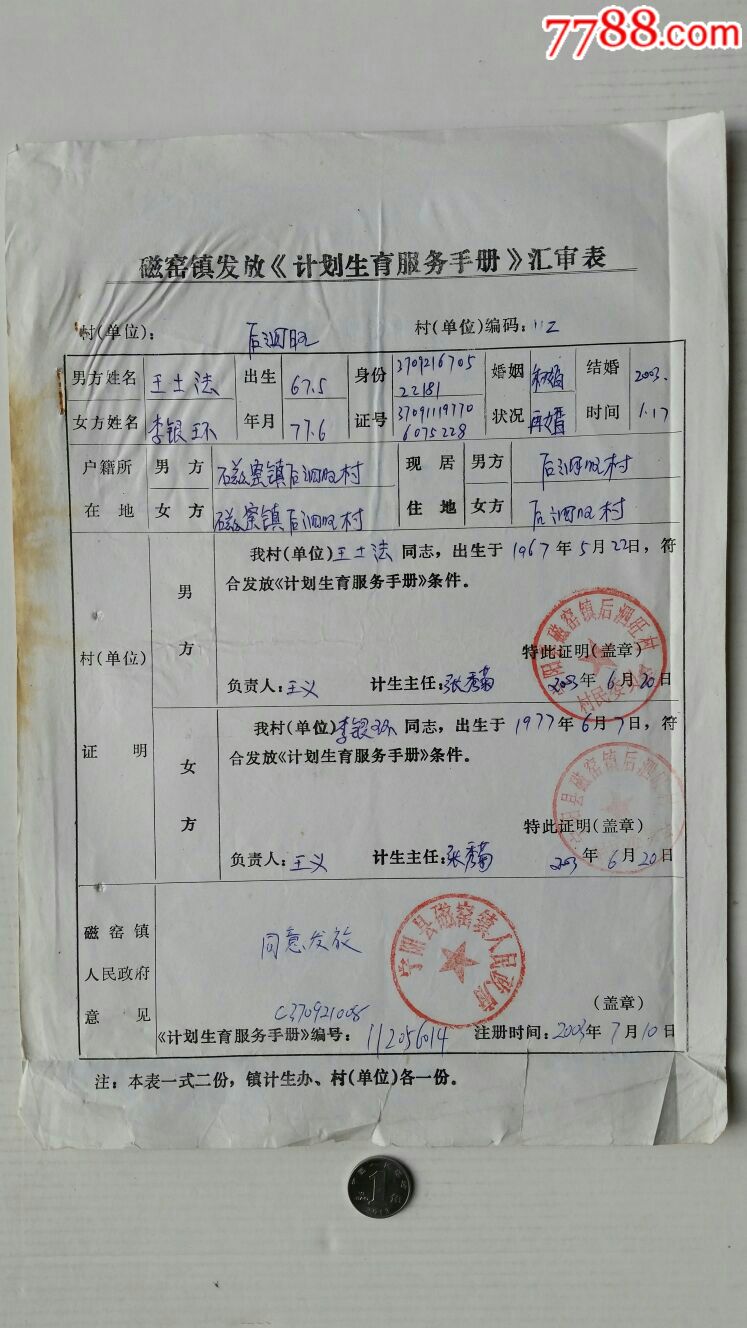 7788.com
磁窑镇发放《计划生育服务手册》汇审表
村(单位): 后泗旺 村(单位)编码: 112
男方姓名 王士法 出生 67.5 身份 3709216705 22181 婚姻 初婚 结婚 2003.
女方姓名 李银环 年月 77.6 证号 37091119770 6075228 状况 再婚 时间 1.17
户籍所 男方 磁窑镇后泗旺村 现居 男方 后泗旺村
在地 女方 磁窑镇后泗旺村 住地 女方 后泗旺村
我村(单位)王士法同志,出生于1967年5月22日,符
合发放《计划生育服务手册》条件。
男
方
村(单位)
特此证明(盖章)
负责人:王义 计生主任:张秀菊 2003年6月20日
宁阳县磁窑镇后泗旺村
村民委员会
我村(单位)李银环同志,出生于1977年6月7日,符
合发放《计划生育服务手册》条件。
证明
女
方
特此证明(盖章)
负责人:王义 计生主任:张秀菊 2003年6月20日
宁阳县磁窑镇后泗旺
磁窑镇
人民政府
意见
同意发放
宁阳县磁窑镇人民政府
(盖章)
C370921008
《计划生育服务手册》编号: 112056014 注册时间:2003年7月10日
注:本表一式二份,镇计生办、村(单位)各一份。
1角